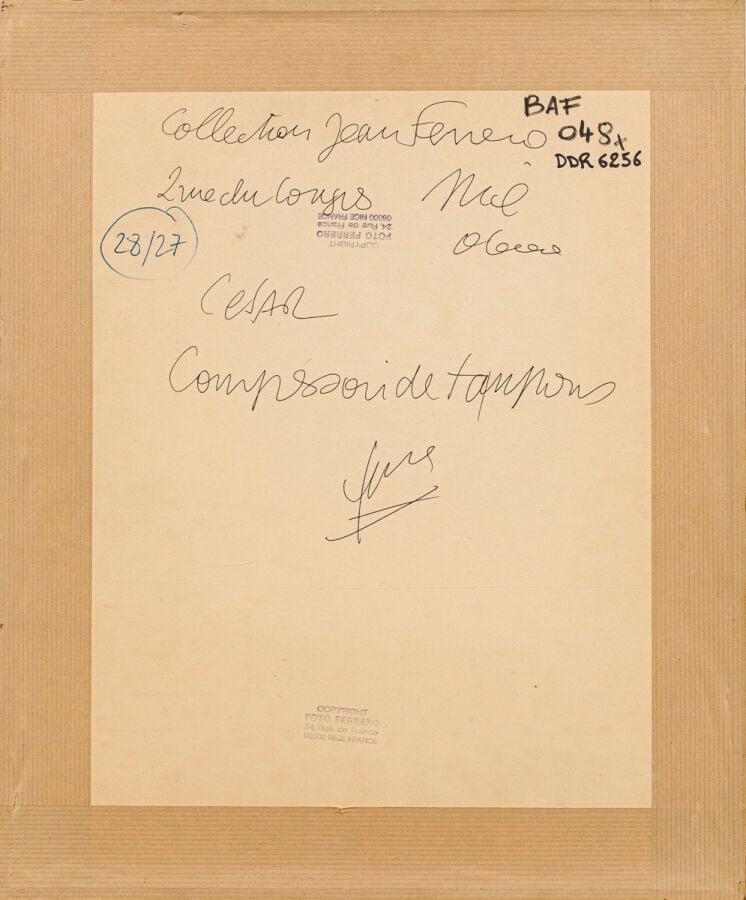 BAF
Collection Jean Ferrero 048x
DDR 6256
2 rue du Congrs Nice
COPYRIGHT
FOTO FERRERO
24, Rue de France
06000 NICE FRANCE
28/27
CESAR
Compression de tampons
COPYRIGHT
FOTO FERRERO
24, Rue de France
06000 NICE FRANCE